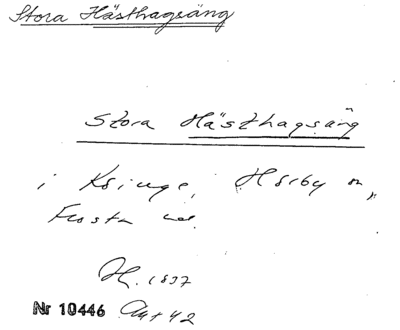 Stora Hästhagsäng
Stora Hästhagsäng
i Ksinge, Hörby sn,
Frosta hd.
H. 1837
Nr 10446 Akt 42